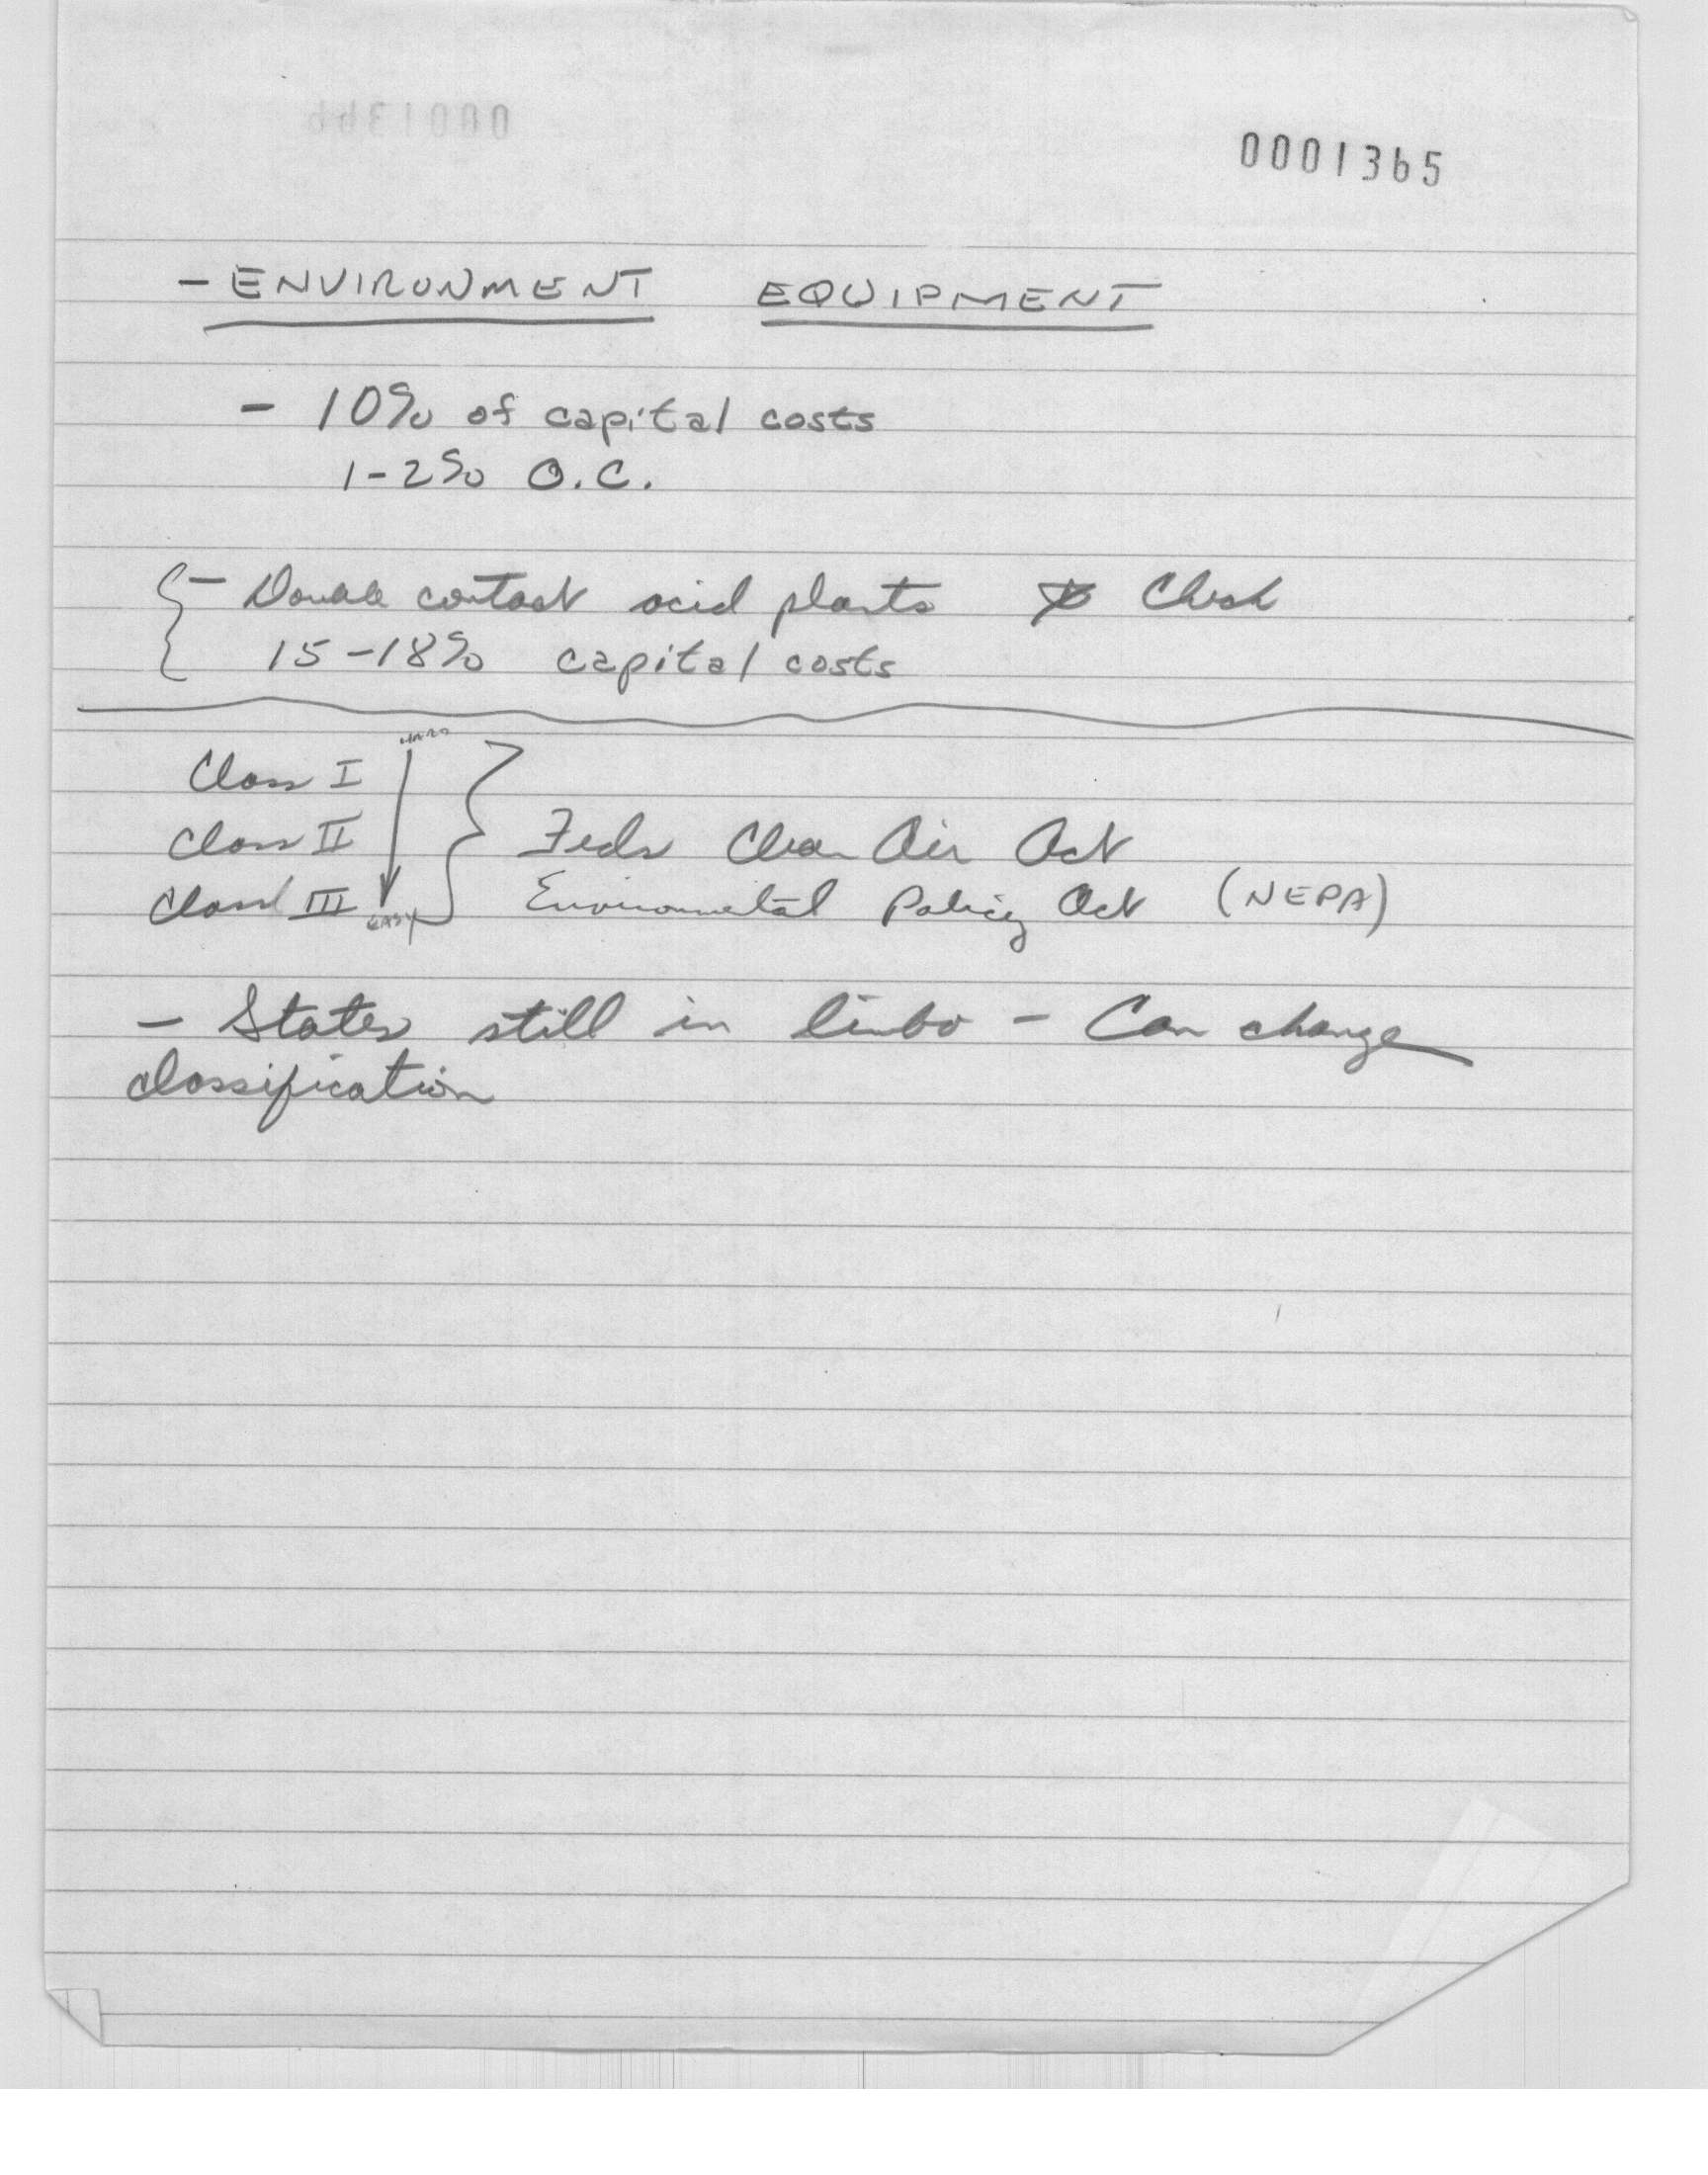 0001366
0001365
- ENVIRONMENT EQUIPMENT
- 10% of capital costs
1-2% O.C.
- Double contact acid plants * Check
15-18% capital costs
HARD
Class I
Class II
Class III
EASY
Feds Clean Air Act
Environmental Policy Act (NEPA)
- States still in limbo - Can change
classification